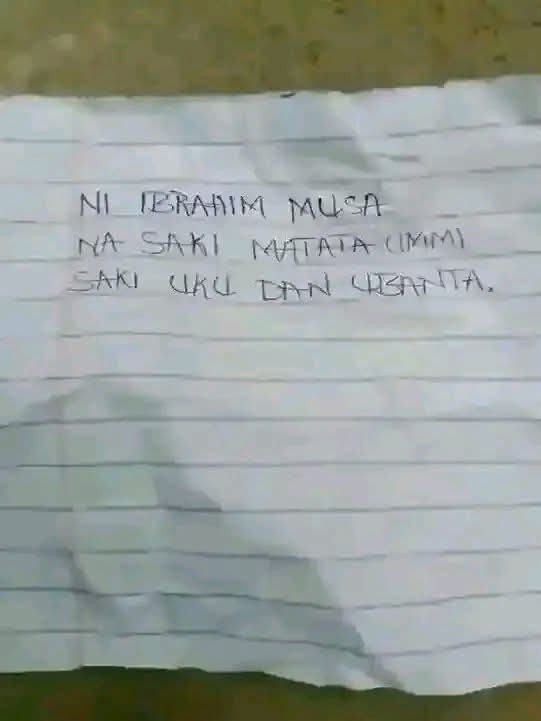 NI IBRAHIM MUSA
NA SAKI MATATA (IMM)
SAKI UKU DAN UBANTA.